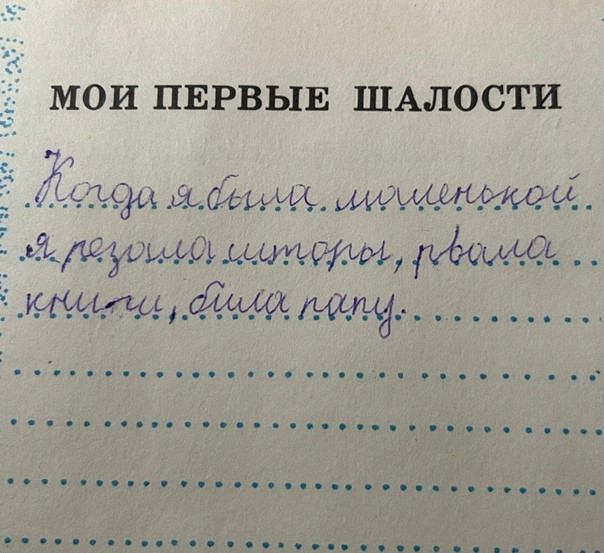 МОИ ПЕРВЫЕ ШАЛОСТИ
Когда я была маленькой
я резала шторы, рвала
книги, била папу.